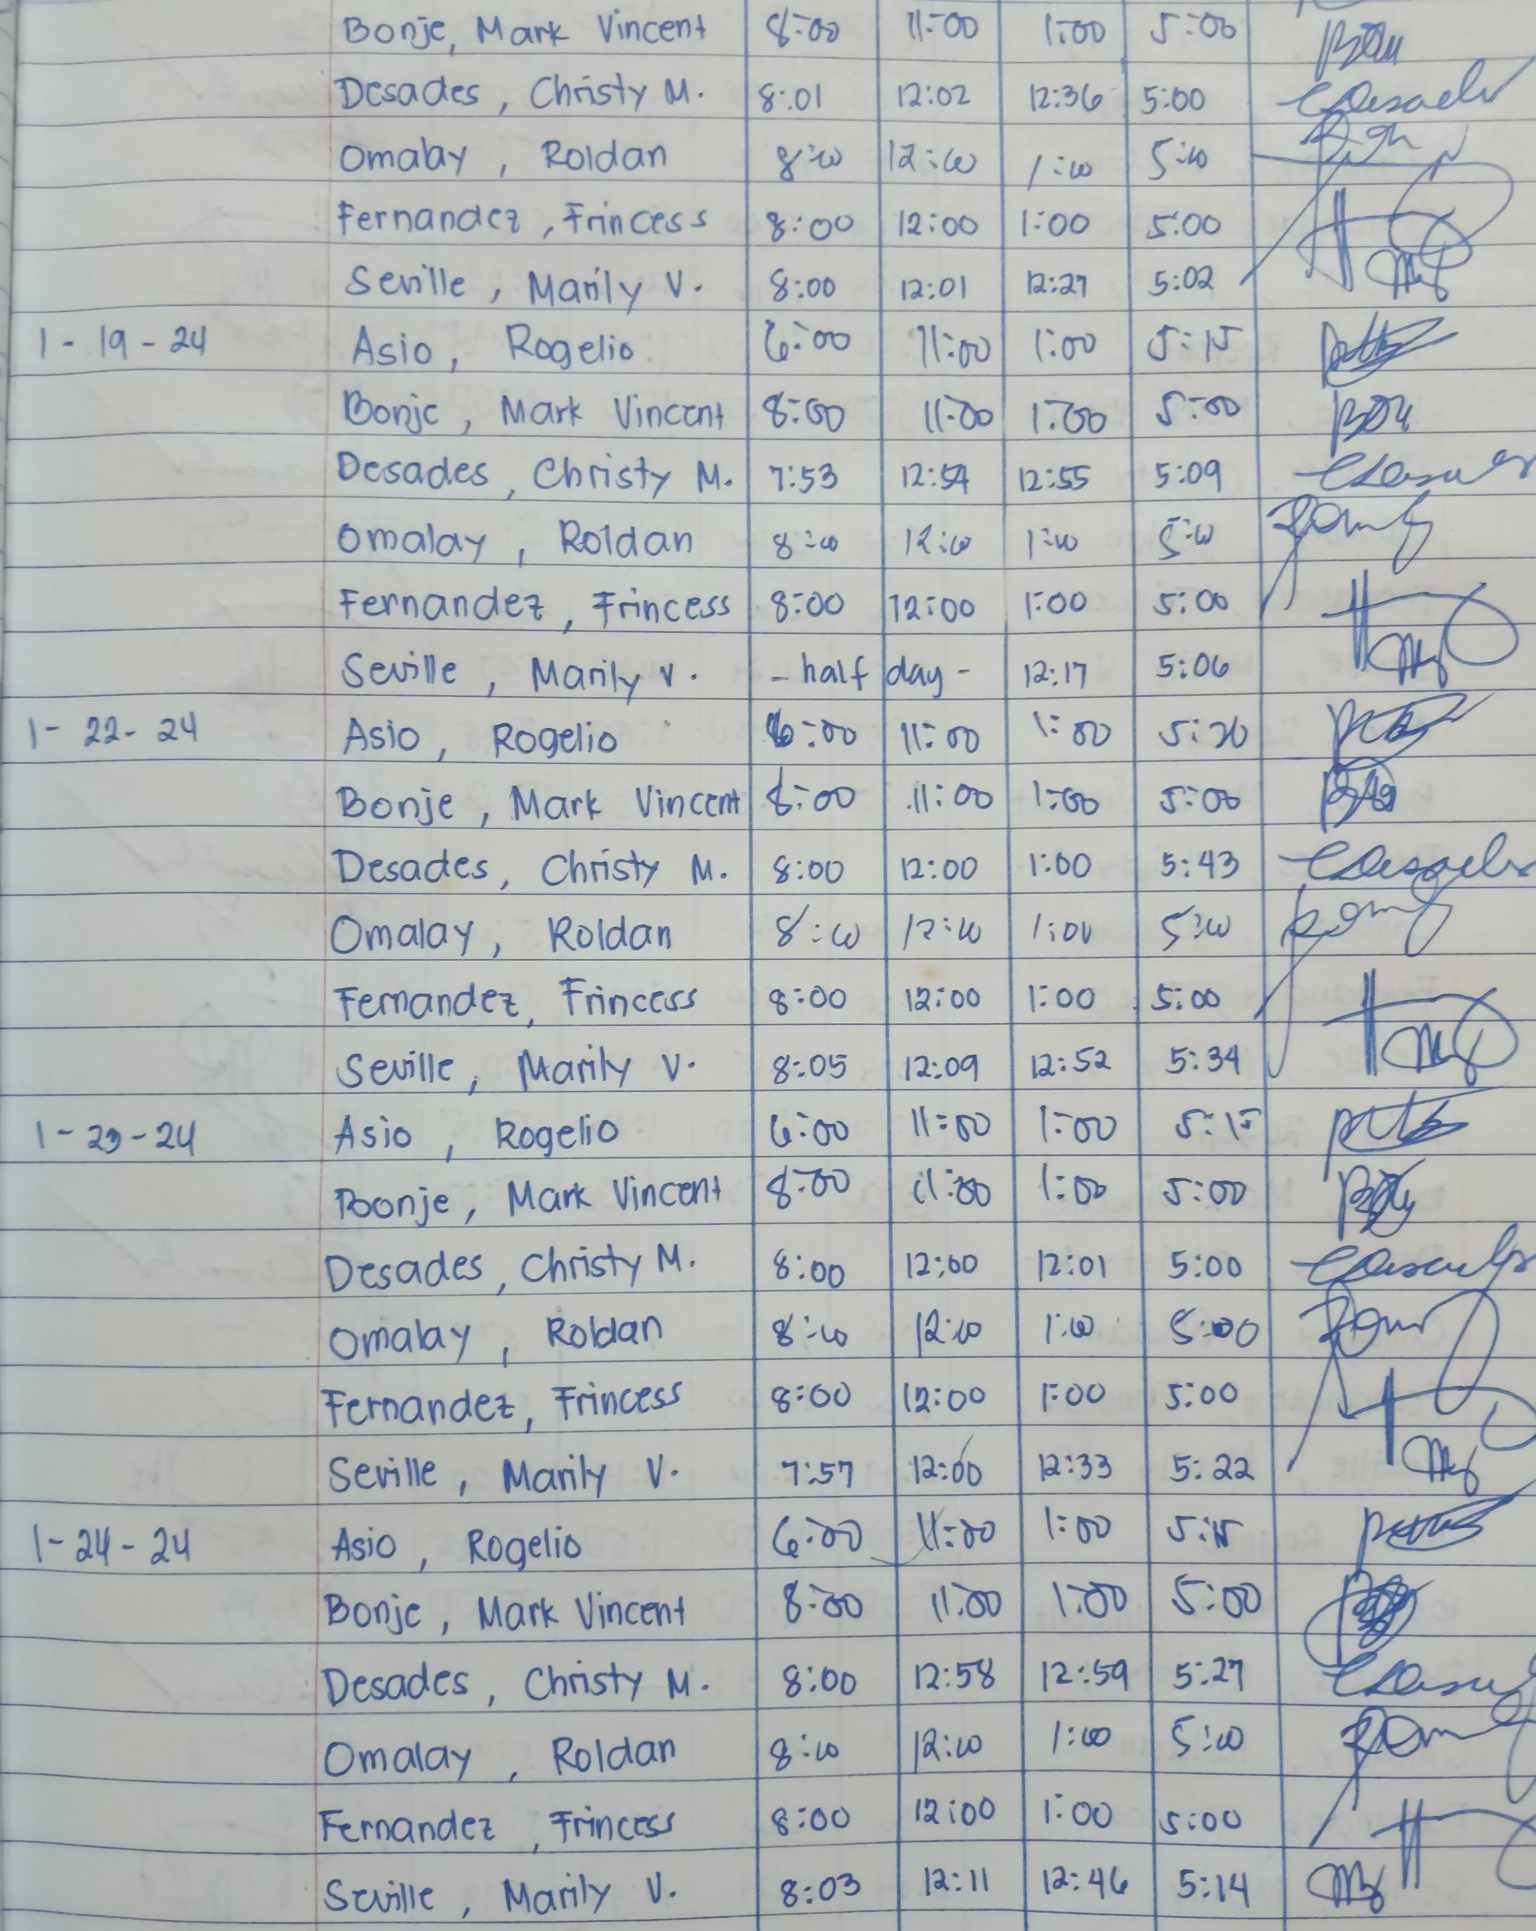 Bonje, Mark Vincent 8:00 11:00 1:00 5:00
Desades, Christy M. 8:01 12:02 12:36 5:00
Omalay, Roldan 8:00 12:00 1:00 5:00
Fernandez, Frincess 8:00 12:00 1:00 5:00
Seville, Marily V. 8:00 12:01 12:27 5:02
1-19-24 Asio, Rogelio 6:00 11:00 1:00 5:15
Bonje, Mark Vincent 8:00 11:00 1:00 5:00
Desades, Christy M. 7:53 12:54 12:55 5:09
Omalay, Roldan 8:00 12:00 1:00 5:00
Fernandez, Frincess 8:00 12:00 1:00 5:00
Seville, Marily V. - half day - 12:17 5:06
1-22-24 Asio, Rogelio 6:00 11:00 1:00 5:20
Bonje, Mark Vincent 8:00 11:00 1:00 5:00
Desades, Christy M. 8:00 12:00 1:00 5:43
Omalay, Roldan 8:00 12:00 1:00 5:00
Fernandez, Frincess 8:00 12:00 1:00 5:00
Seville, Marily V. 8:05 12:09 12:52 5:34
1-23-24 Asio, Rogelio 6:00 11:00 1:00 5:15
Bonje, Mark Vincent 8:00 11:00 1:00 5:00
Desades, Christy M. 8:00 12:00 12:01 5:00
Omalay, Roldan 8:00 12:00 1:00 5:00
Fernandez, Frincess 8:00 12:00 1:00 5:00
Seville, Marily V. 7:57 12:00 12:33 5:22
1-24-24 Asio, Rogelio 6:00 11:00 1:00 5:15
Bonje, Mark Vincent 8:00 11:00 1:00 5:00
Desades, Christy M. 8:00 12:58 12:59 5:27
Omalay, Roldan 8:00 12:00 1:00 5:00
Fernandez, Frincess 8:00 12:00 1:00 5:00
Seville, Marily V. 8:03 12:11 12:46 5:14